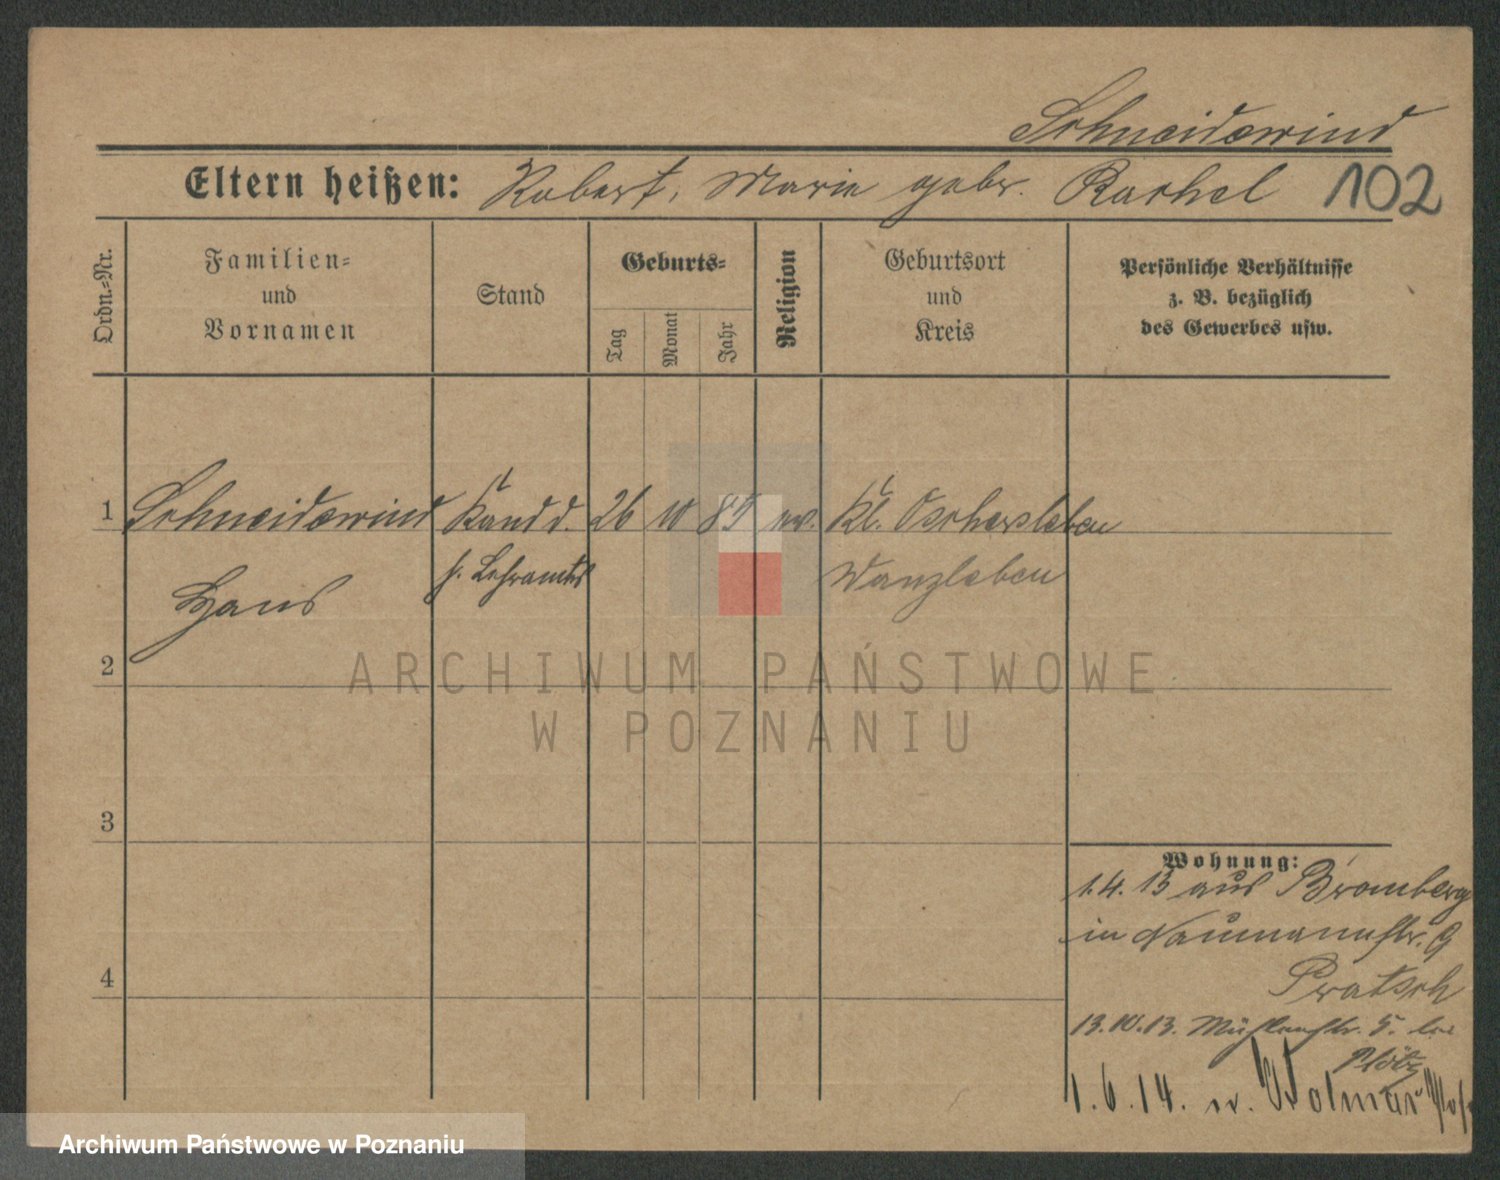 Schneidewind
Eltern heißen: Robert, Marie gebr. Rachel 102
Ordn.-Nr.
Familien-
und
Vornamen
Stand
Geburts-
Tag
Monat
Jahr
Religion
Geburtsort
und
Kreis
Persönliche Verhältnisse
z. B. bezüglich
des Gewerbes usw.
1 Schneidewind Kand d. 26 10 89 ev. Kl. Oschersleben
h. Lehramts Wanzleben
Hans
2
3
4
Wohnung:
1.4.13 aus Bromberg
in Naumannstr. 9
Pratsch
13.10.13. Mühlenstr. 5. bei
Plötz
1.6.14. n. Wolmar
ARCHIWUM PAŃSTWOWE
W POZNANIU
Archiwum Państwowe w Poznaniu